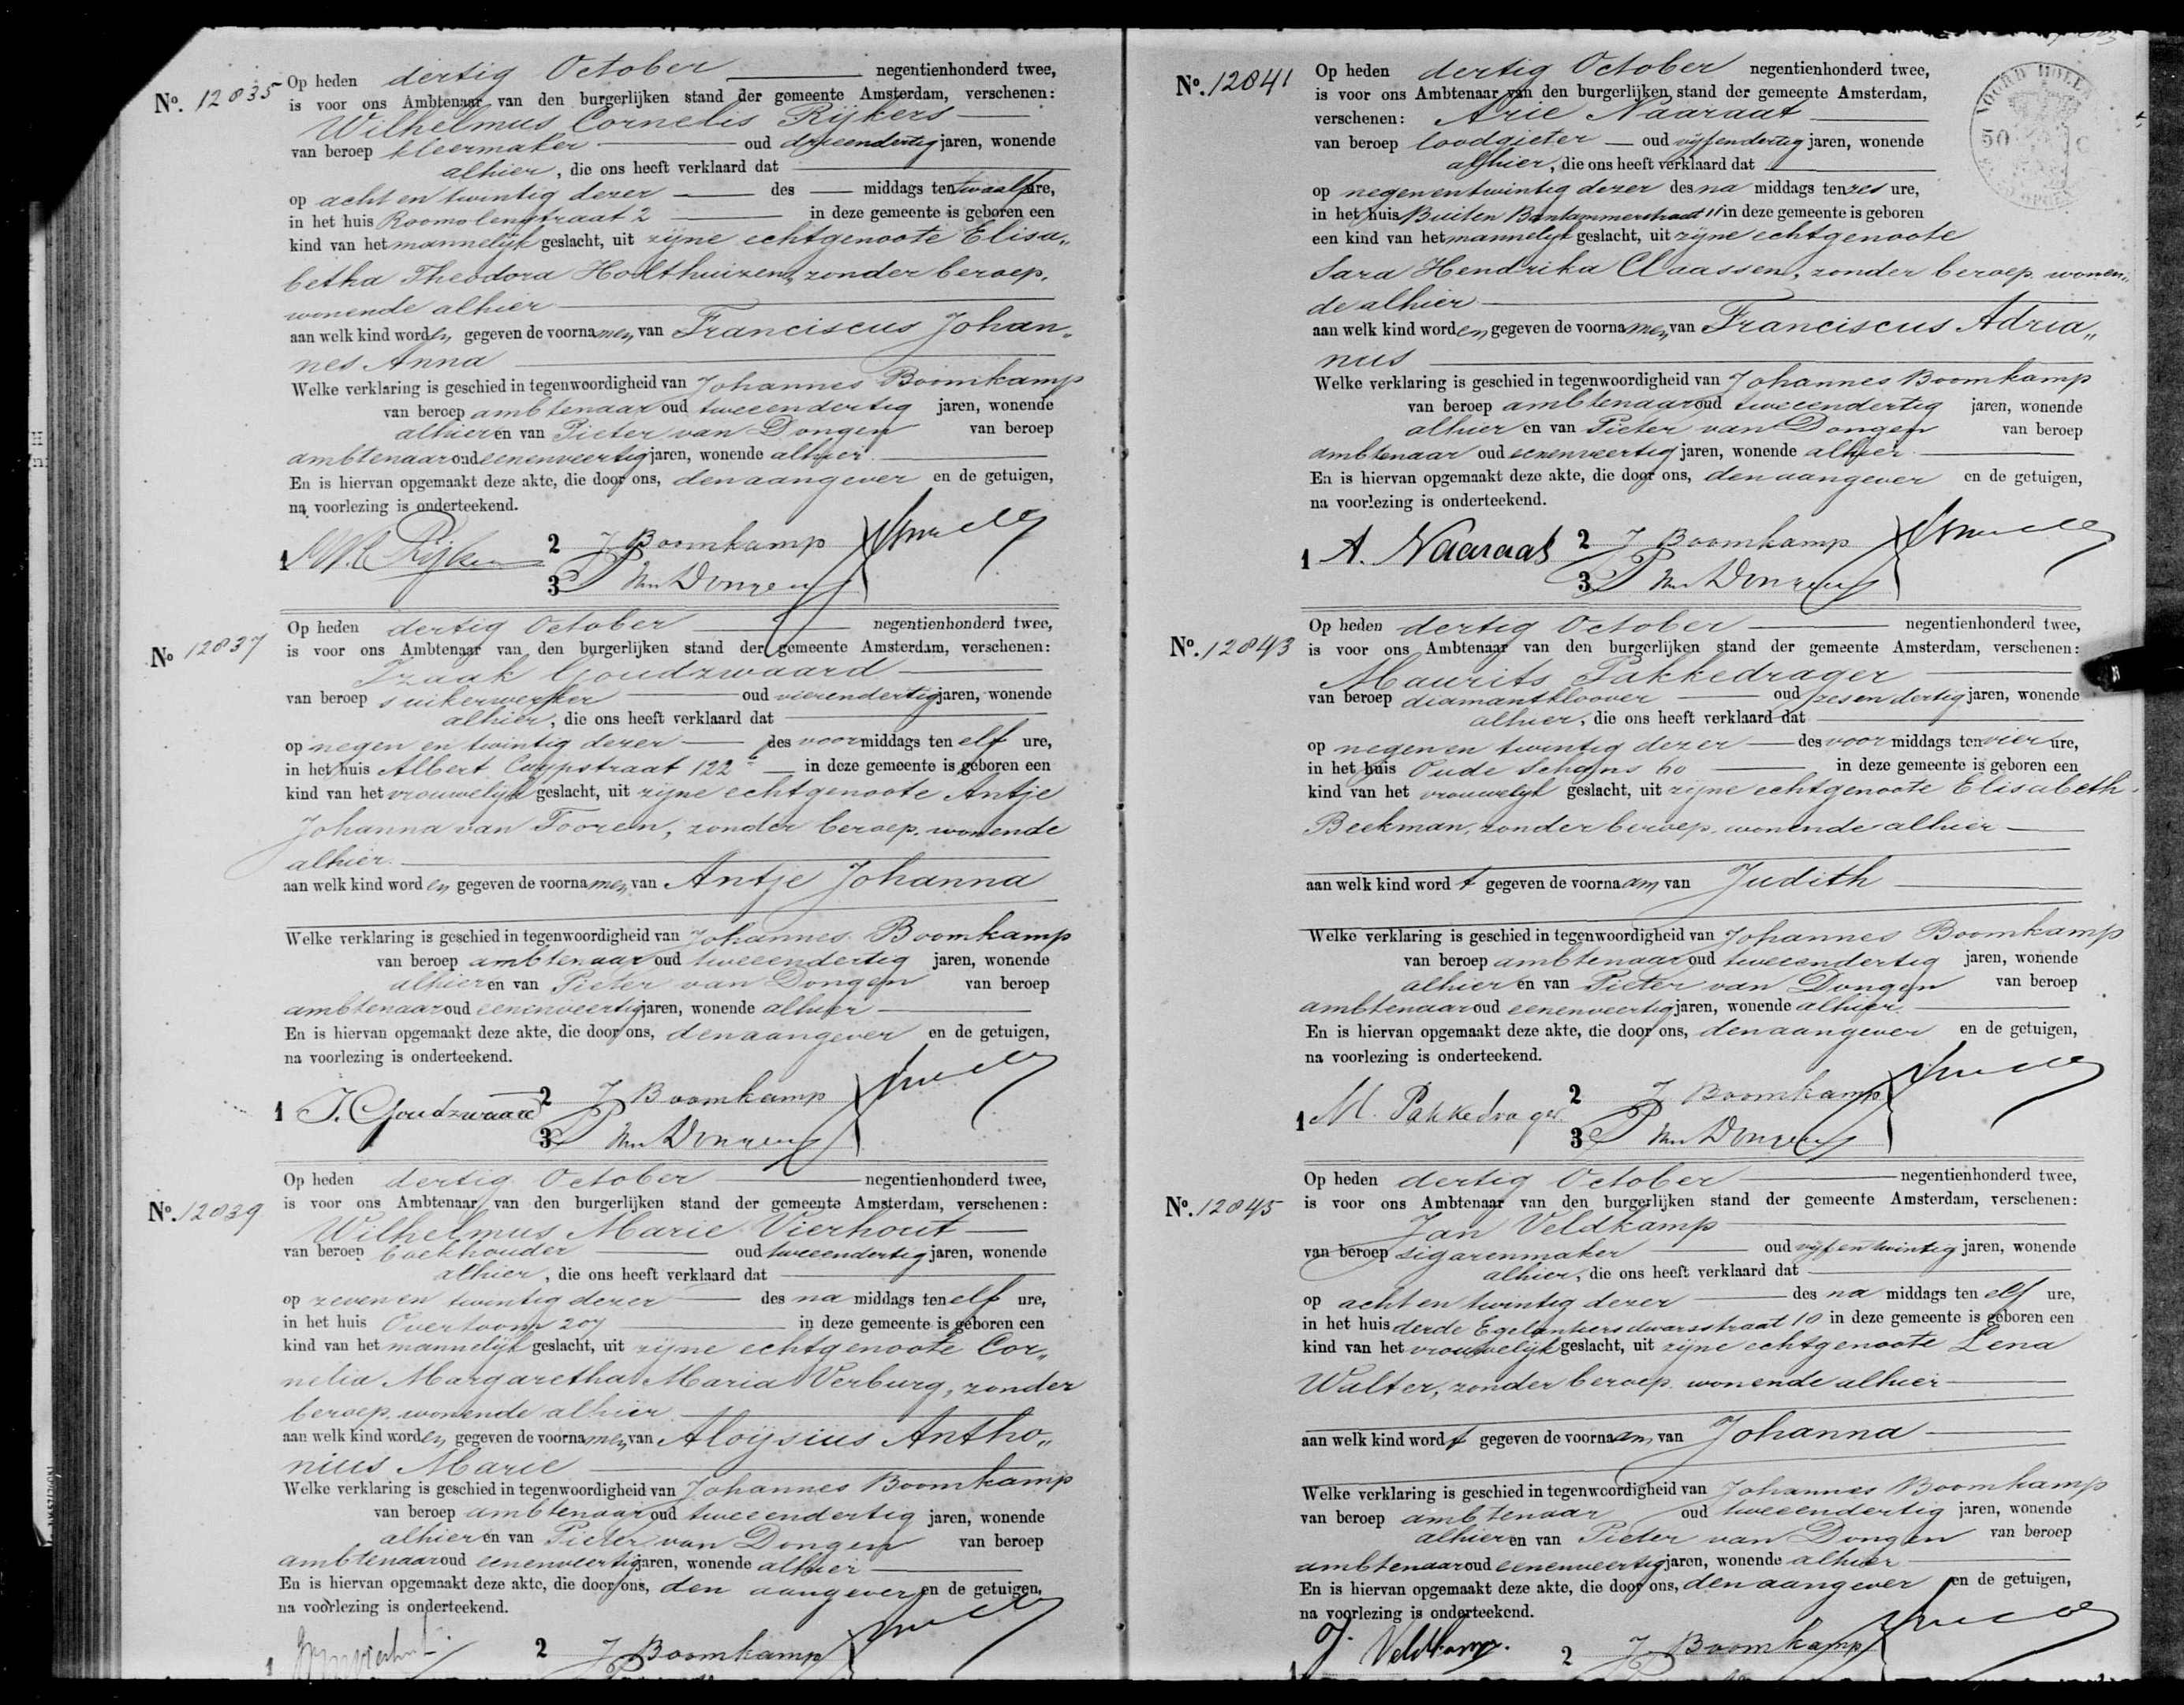 No. 12835
Op heden dertig October negentienhonderd twee,
is voor ons Ambtenaar van den burgerlijken stand der gemeente Amsterdam, verschenen:
Wilhelmus Cornelis Rijkers
van beroep kleermaker oud drieendertig jaren, wonende
alhier, die ons heeft verklaard dat
op acht en twintig dezer des middags ten twaalf ure,
in het huis Roomolenstraat 2 in deze gemeente is geboren een
kind van het mannelijk geslacht, uit zijne echtgenoote Elisa„
betha Theodora Holthuizen, zonder beroep,
wonende alhier
aan welk kind worden gegeven de voornamen van Franciscus Johan„
nes Anna
Welke verklaring is geschied in tegenwoordigheid van Johannes Boomkamp
van beroep ambtenaar oud tweeendertig jaren, wonende
alhier en van Pieter van Dongen van beroep
ambtenaar oud eenenveertig jaren, wonende alhier
En is hiervan opgemaakt deze akte, die door ons, den aangever en de getuigen,
na voorlezing is onderteekend.
1 W.C. Rijkers 2 J Boomkamp
3 P van Dongen
No 12837
Op heden dertig October negentienhonderd twee,
is voor ons Ambtenaar van den burgerlijken stand der gemeente Amsterdam, verschenen:
Izaak Goudzwaard
van beroep suikerwerker oud vierendertig jaren, wonende
alhier, die ons heeft verklaard dat
op negen en twintig dezer des voormiddags ten elf ure,
in het huis Albert Cuypstraat 122 in deze gemeente is geboren een
kind van het vrouwelijk geslacht, uit zijne echtgenoote Antje
Johanna van Tooren, zonder beroep, wonende
alhier
aan welk kind worden gegeven de voornamen van Antje Johanna
Welke verklaring is geschied in tegenwoordigheid van Johannes Boomkamp
van beroep ambtenaar oud tweeendertig jaren, wonende
alhier en van Pieter van Dongen van beroep
ambtenaar oud eenenveertig jaren, wonende alhier
En is hiervan opgemaakt deze akte, die door ons, den aangever en de getuigen,
na voorlezing is onderteekend.
1 I. Goudzwaard 2 J Boomkamp
3 P van Dongen
No. 12839
Op heden dertig October negentienhonderd twee,
is voor ons Ambtenaar van den burgerlijken stand der gemeente Amsterdam, verschenen:
Wilhelmus Marie Vierhout
van beroep boekhouder oud tweeendertig jaren, wonende
alhier, die ons heeft verklaard dat
op zeven en twintig dezer des na middags ten elf ure,
in het huis Overtoom 207 in deze gemeente is geboren een
kind van het mannelijk geslacht, uit zijne echtgenoote Cor„
nelia Margaretha Maria Verburg, zonder
beroep, wonende alhier
aan welk kind worden gegeven de voornamen van Aloysius Antho„
nius Marie
Welke verklaring is geschied in tegenwoordigheid van Johannes Boomkamp
van beroep ambtenaar oud tweeendertig jaren, wonende
alhier en van Pieter van Dongen van beroep
ambtenaar oud eenenveertig jaren, wonende alhier
En is hiervan opgemaakt deze akte, die door ons, den aangever en de getuigen,
na voorlezing is onderteekend.
1 2 J Boomkamp
No. 12841
Op heden dertig October negentienhonderd twee,
is voor ons Ambtenaar van den burgerlijken stand der gemeente Amsterdam,
verschenen: Arie Naaraat
van beroep loodgieter oud vijfendertig jaren, wonende
alhier, die ons heeft verklaard dat
op negenentwintig dezer des na middags ten zes ure,
in het huis Buiten Bantammerstraat 11 in deze gemeente is geboren
een kind van het mannelijk geslacht, uit zijne echtgenoote
Sara Hendrika Claassen, zonder beroep, wonen„
de alhier
aan welk kind worden gegeven de voornamen van Franciscus Adria„
nus
Welke verklaring is geschied in tegenwoordigheid van Johannes Boomkamp
van beroep ambtenaar oud tweeendertig jaren, wonende
alhier en van Pieter van Dongen van beroep
ambtenaar oud eenenveertig jaren, wonende alhier
En is hiervan opgemaakt deze akte, die door ons, den aangever en de getuigen,
na voorlezing is onderteekend.
1 A. Naaraat 2 J Boomkamp
3 P van Dongen
No. 12843
Op heden dertig October negentienhonderd twee,
is voor ons Ambtenaar van den burgerlijken stand der gemeente Amsterdam, verschenen:
Maurits Pakkedrager
van beroep diamantkloover oud zesendertig jaren, wonende
alhier, die ons heeft verklaard dat
op negen en twintig dezer des voor middags ten vier ure,
in het huis Oude Schans 60 in deze gemeente is geboren een
kind van het vrouwelijk geslacht, uit zijne echtgenoote Elisabeth
Beekman, zonder beroep, wonende alhier
aan welk kind wordt gegeven de voornaam van Judith
Welke verklaring is geschied in tegenwoordigheid van Johannes Boomkamp
van beroep ambtenaar oud tweeendertig jaren, wonende
alhier en van Pieter van Dongen van beroep
ambtenaar oud eenenveertig jaren, wonende alhier
En is hiervan opgemaakt deze akte, die door ons, den aangever en de getuigen,
na voorlezing is onderteekend.
1 M. Pakkedrager 2 J Boomkamp
3 P van Dongen
No. 12845
Op heden dertig October negentienhonderd twee,
is voor ons Ambtenaar van den burgerlijken stand der gemeente Amsterdam, verschenen:
Jan Veldkamp
van beroep sigarenmaker oud vijf en twintig jaren, wonende
alhier, die ons heeft verklaard dat
op acht en twintig dezer des na middags ten elf ure,
in het huis derde Egelantiersdwarsstraat 10 in deze gemeente is geboren een
kind van het vrouwelijk geslacht, uit zijne echtgenoote Lena
Walter, zonder beroep, wonende alhier
aan welk kind wordt gegeven de voornaam van Johanna
Welke verklaring is geschied in tegenwoordigheid van Johannes Boomkamp
van beroep ambtenaar oud tweeendertig jaren, wonende
alhier en van Pieter van Dongen van beroep
ambtenaar oud eenenveertig jaren, wonende alhier
En is hiervan opgemaakt deze akte, die door ons, den aangever en de getuigen,
na voorlezing is onderteekend.
J. Veldkamp. 2 J Boomkamp